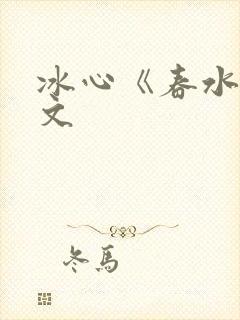 冰心《春水
文
冬馬